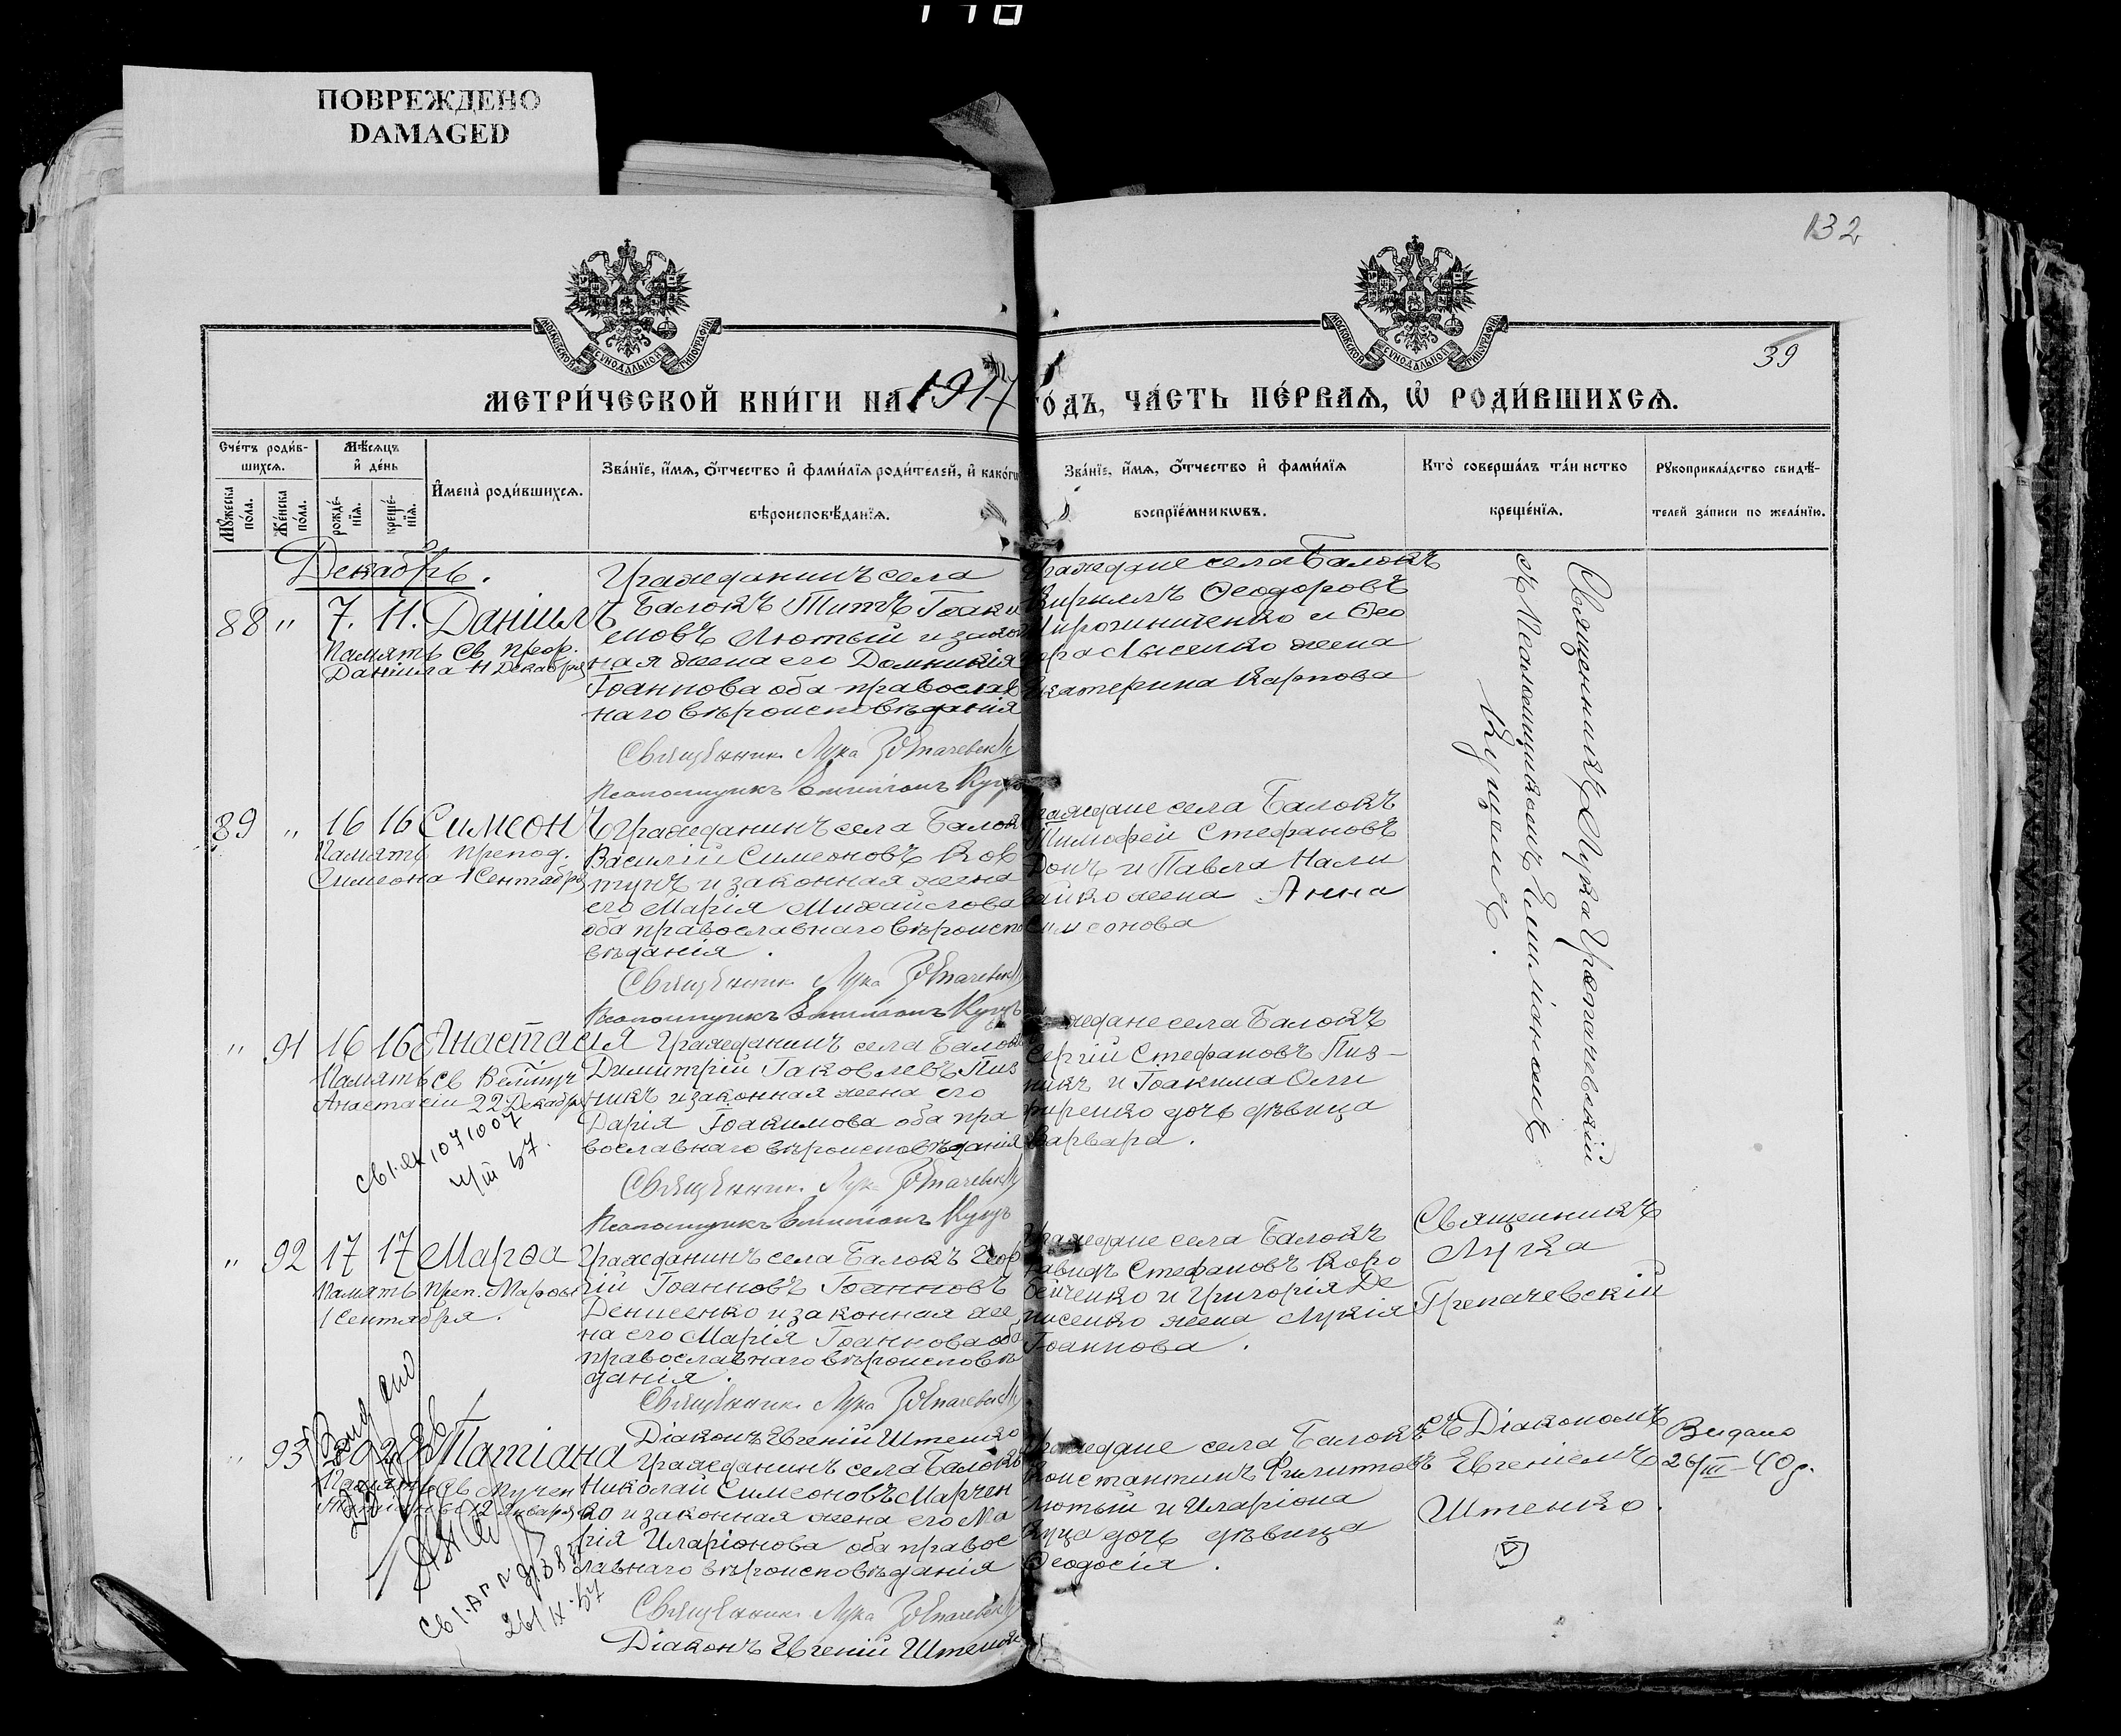 ПОВРЕЖДЕНО
DAMAGED
132
39
МЕТРИ́ЧЕСКОЙ КНИ́ГИ НА 1917
ГОДЪ, ЧА́СТЬ ПЕ́РВАѦ, Ѡ҆ РОДИ́ВШИХСѦ.
Сче́тъ роди́в-
шихсѧ.
Мѣ́сѧцъ
и҆ де́нь
Мꙋ́жеска
по́ла.
Же́нска
по́ла.
рожде́-
нїѧ.
креще́-
нїѧ.
И҆мена̀ роди́вшихсѧ.
Зва́нїе, и҆́мѧ, ѻ҆́тчество и҆ фами́лїѧ роди́телей, и҆ како́гѡ
вѣроисповѣ́данїѧ.
Зва́нїе, и҆́мѧ, ѻ҆́тчество и҆ фами́лїѧ
воспрїе́мникѡвъ.
Кто̀ соверша́лъ та́инство
креще́нїѧ.
Рꙋкоприкла́дство свидѣ́-
телей за́писи по жела́нїю.
Декабрь.
88 " 7. 11. Даніилъ
Память Св. Преп.
Даніила 11 Декабря
Гражданинъ села
Балокъ Титъ Іоаки
мовъ Лютый и закон
ная жена его Домникія
Іоаннова оба православ
наго вѣроисповѣданія
Священникъ Лука
Псаломщикъ Емиліанъ Куцъ
Граждане села Балокъ
Кириллъ Ѳеодоровъ
и Ѳео
дора Лысенко жена
Екатерина Карпова
Священникъ Лука Грепачевскій
съ Псаломщикомъ Емиліаномъ
Куцемъ.
89 " 16 16 Симеонъ
Память Препод.
Симеона 1 Сентября
Гражданинъ села Балокъ
Василій Симеоновъ Ков
тунъ и законная жена
его Марія Михайлова
оба православнаго вѣроиспо
вѣданія.
Священникъ Лука
Псаломщикъ Емиліанъ Куцъ
Граждане села Балокъ
Тимофей Стефановъ
Донъ и Павла Нали
вайко жена Анна
Симеонова
" 91 16 16 Анастасія
Память Св. Велмуч
Анастасіи 22 Декабря
Гражданинъ села Балокъ
Димитрій Іаковлевъ Пиз
никъ и законная жена его
Дарія Іоакимова оба пра
вославнаго вѣроисповѣданія
Священникъ Лука
Псаломщикъ Емиліанъ Куцъ
Граждане села Балокъ
Сергій Стефановъ Пиз-
никъ и Іоакима Оли
ференко дочь дѣвица
Варвара.
" 92 17 17 Марѳа
Память Преп. Марѳы
1 Сентября.
Гражданинъ села Балокъ Геор
гій Іоанновъ Іоанновъ
Денисенко и законная же
на его Марія Іоаннова оба
православнаго вѣроисповѣ
данія.
Священникъ Лука
Діаконъ Евгеній Штенко
Граждане села Балокъ
Давидъ Стефановъ Коро
бейченко и Григорія Де
нисенко жена Лукія
Іоаннова.
Священникъ
Лука
Грепачевскій
" 93 20 Татіана
Память Св. Мучен
12 Января
Гражданинъ села Балокъ
Николай Симеоновъ Марчен
ко и законная жена его Ма
рія Иларіонова оба правос
лавнаго вѣроисповѣданія
Священникъ Лука
Діаконъ Евгеній Штенко
Граждане села Балокъ
Константинъ Филипповъ
Лютый и Иларіона
Куца дочь дѣвица
Ѳеодосія.
съ Діакономъ
Евгеніемъ
Штенко.
Видано
26/III-40 р.